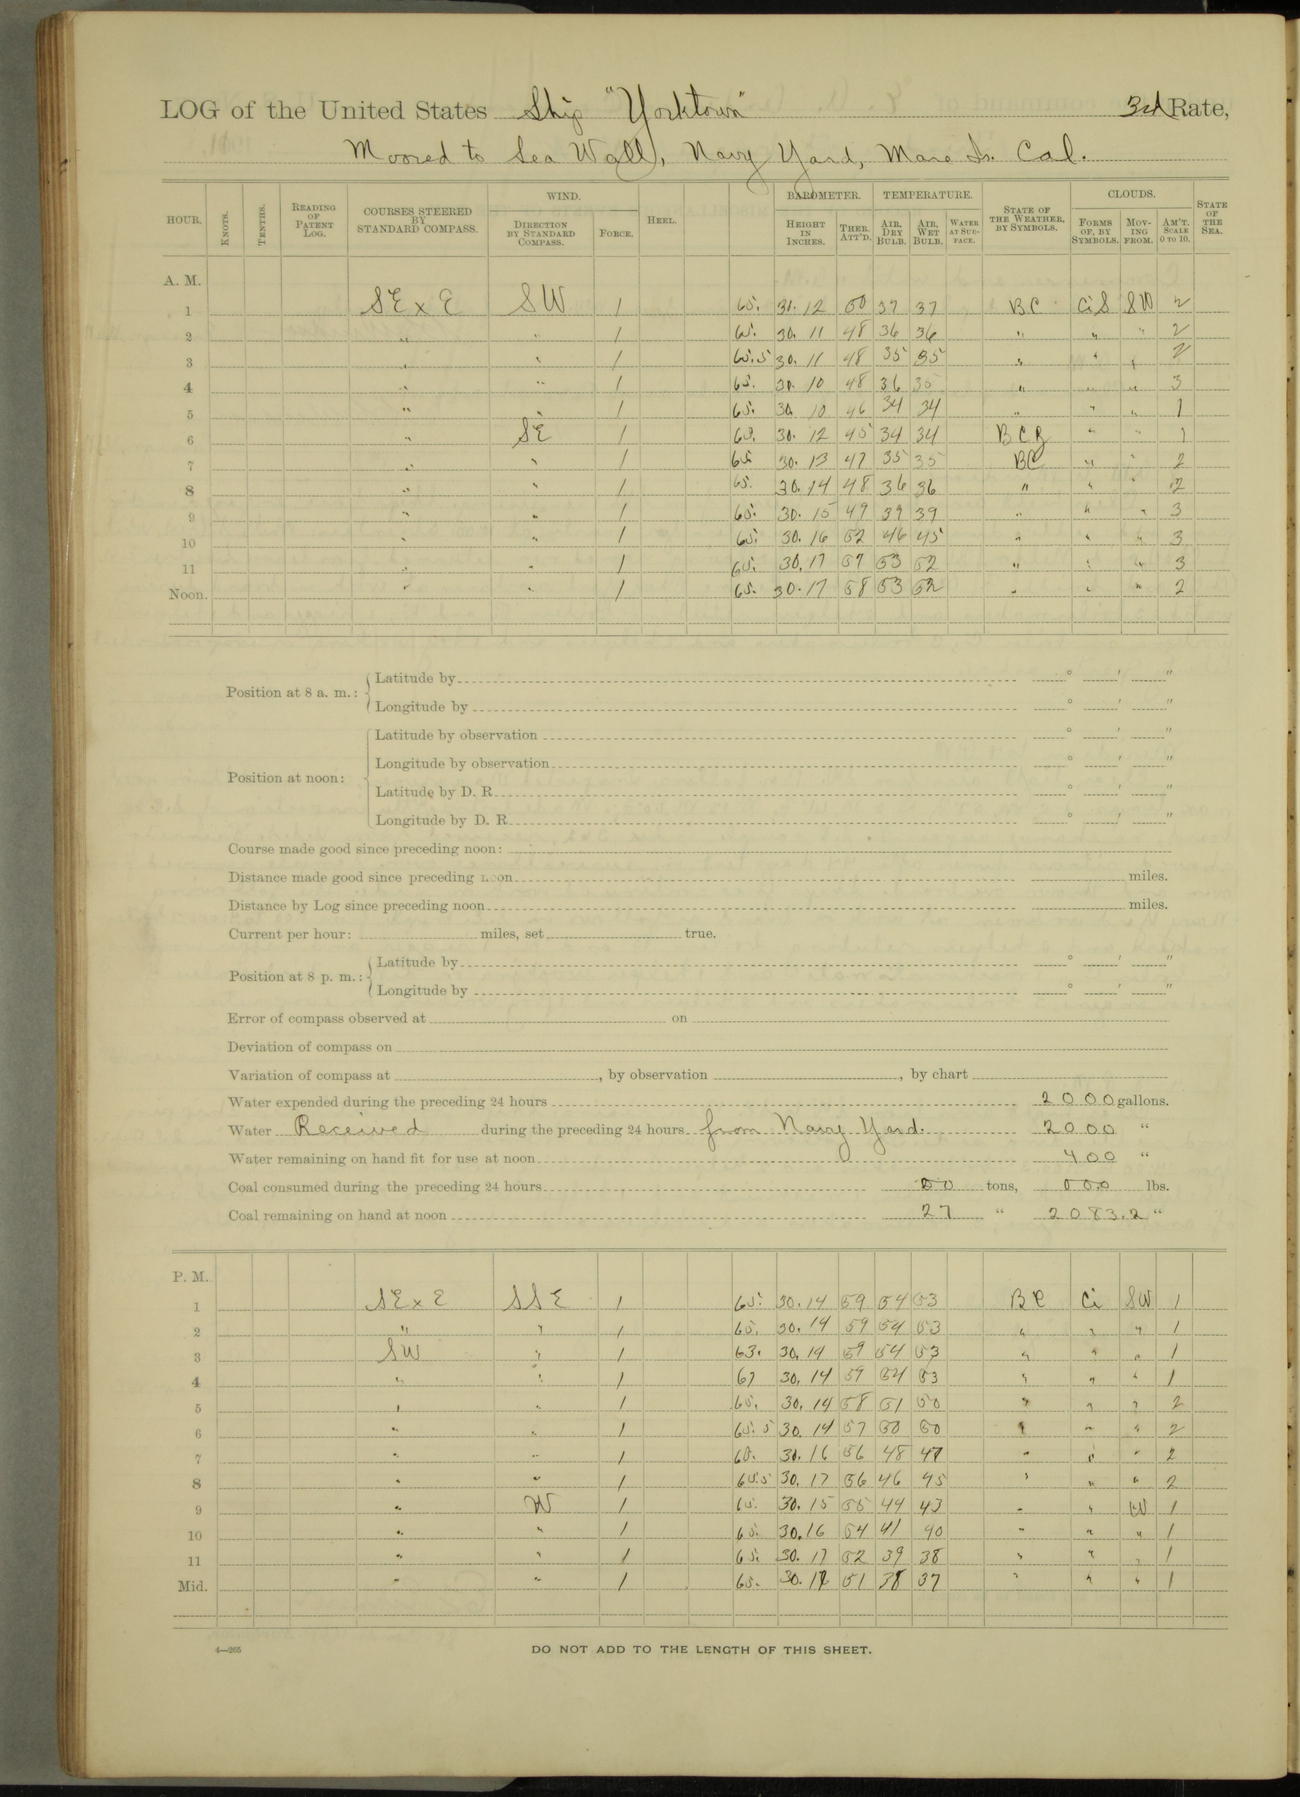 LOG of the United States Ship "Yorktown" 3rd Rate,
Moored to Sea Wall, Navy Yard, Mare Is. Cal.
HOUR. KNOTS. TENTHS. READING OF PATENT LOG. COURSES STEERED BY STANDARD COMPASS. WIND. DIRECTION BY STANDARD COMPASS. FORCE. HEEL. BAROMETER. HEIGHT IN INCHES. THER. ATT'D. TEMPERATURE. AIR, DRY BULB. AIR, WET BULB. WATER AT SURFACE. STATE OF THE WEATHER, BY SYMBOLS. CLOUDS. FORMS OF, BY SYMBOLS. MOVING FROM. AM'T. SCALE 0 TO 10. STATE OF THE SEA.
A. M.
1 SE x E SW 1 65. 31.12 50 37 37 BC CiS SW 2
2 " " 1 65. 30.11 48 36 36 " " " 2
3 " " 1 65.5 30.11 48 35 35 " " " 2
4 " " 1 65. 30.10 48 36 35 " " " 3
5 " " 1 65. 30.10 46 34 34 " " " 1
6 " SE 1 65. 30.12 45 34 34 BCZ " " 1
7 " " 1 65 30.13 47 35 35 BC " " 2
8 " " 1 65. 30.14 48 36 36 " " " 2
9 " " 1 65. 30.15 49 39 39 " " " 3
10 " " 1 65. 30.16 52 46 45 " " " 3
11 " " 1 65. 30.17 57 53 52 " " " 3
Noon. " " 1 65. 30.17 58 53 52 " " " 2
Position at 8 a. m.: Latitude by ° ' "
Longitude by ° ' "
Position at noon: Latitude by observation ° ' "
Longitude by observation ° ' "
Latitude by D. R. ° ' "
Longitude by D. R. ° ' "
Course made good since preceding noon:
Distance made good since preceding noon miles.
Distance by Log since preceding noon miles.
Current per hour: miles, set true.
Position at 8 p. m.: Latitude by ° ' "
Longitude by ° ' "
Error of compass observed at on
Deviation of compass on
Variation of compass at , by observation , by chart
Water expended during the preceding 24 hours 2000 gallons.
Water Received during the preceding 24 hours from Navy Yard. 2000 "
Water remaining on hand fit for use at noon 400 "
Coal consumed during the preceding 24 hours 00 tons, 000 lbs.
Coal remaining on hand at noon 27 " 2083.2 "
P. M.
1 SE x E SSE 1 65. 30.14 59 54 53 BC Ci SW 1
2 " " 1 65. 30.14 59 54 53 " " " 1
3 SW " 1 63. 30.14 59 54 53 " " " 1
4 " " 1 30.14 59 54 53 " " " 1
5 " " 1 65. 30.14 58 51 50 " " " 2
6 " " 1 65.5 30.14 57 50 50 " " " 2
7 " " 1 65. 30.16 56 48 47 " " " 2
8 " " 1 65.5 30.17 56 46 45 " " " 2
9 " W 1 65. 30.15 55 44 43 " " W 1
10 " " 1 65. 30.16 54 41 40 " " " 1
11 " " 1 65. 30.17 52 39 38 " " " 1
Mid. " " 1 65. 30.17 51 38 37 " " " 1
4—265
DO NOT ADD TO THE LENGTH OF THIS SHEET.